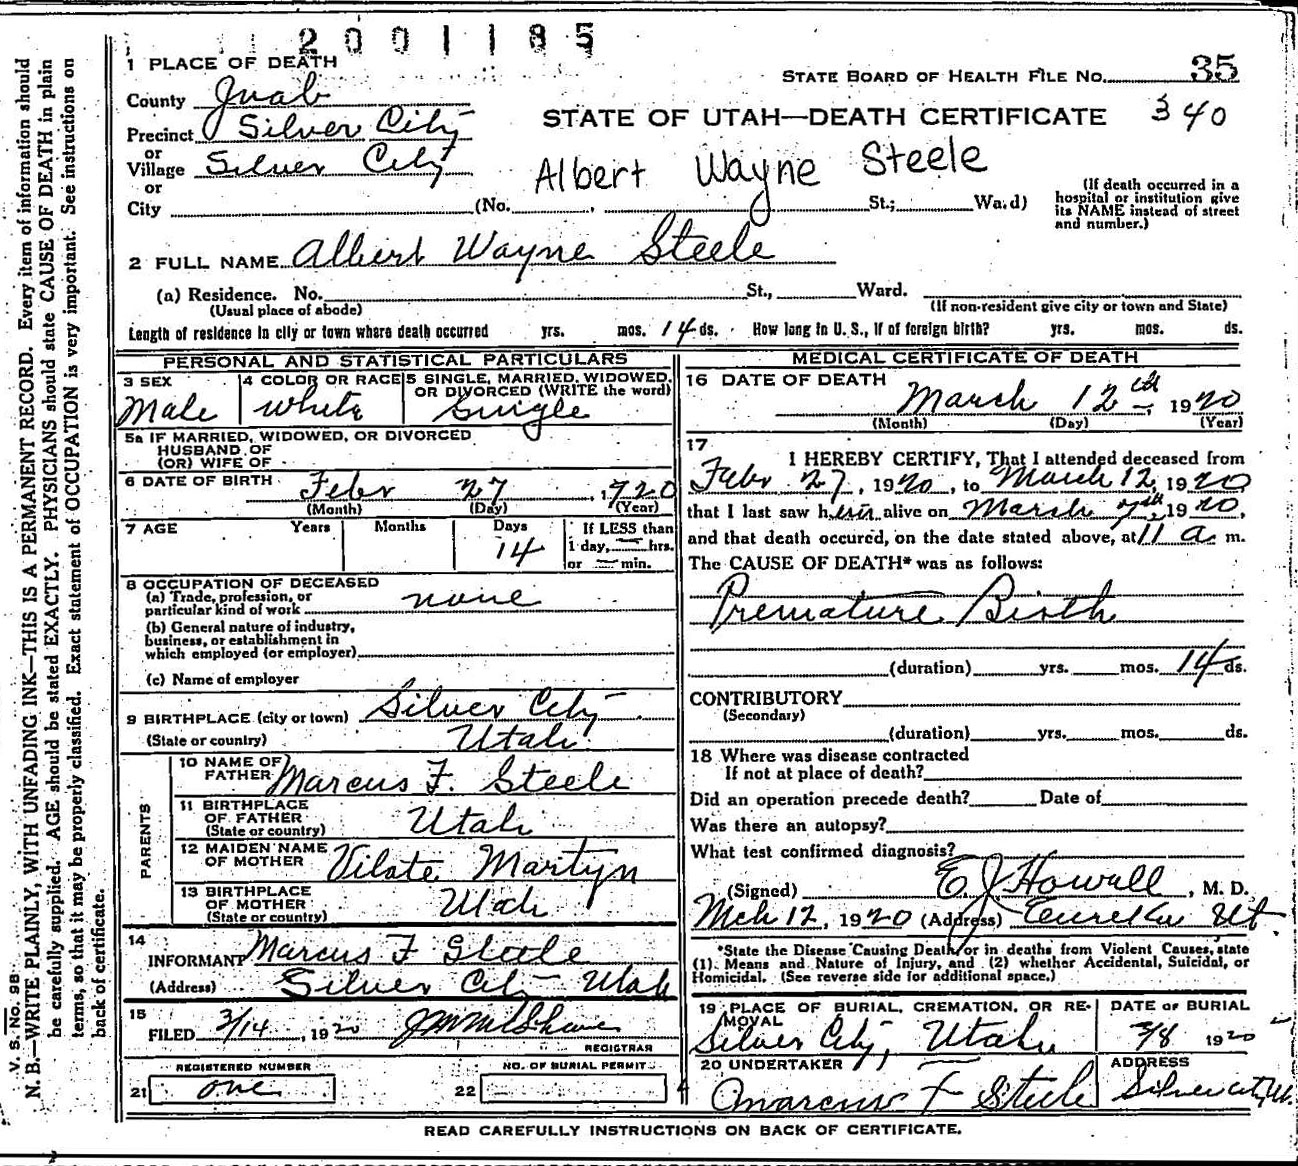 2001185
1 PLACE OF DEATH
STATE BOARD OF HEALTH FILE No. 35
County Juab
STATE OF UTAH—DEATH CERTIFICATE 340
Precinct Silver City
or
Village Silver City
Albert Wayne Steele
or
City (No. , St.; Ward)
(If death occurred in a hospital or institution give its NAME instead of street and number.)
2 FULL NAME Albert Wayne Steele
(a) Residence. No. St., Ward.
(Usual place of abode) (If non-resident give city or town and State)
Length of residence in city or town where death occurred yrs. mos. 14 ds. How long in U. S., if of foreign birth? yrs. mos. ds.
PERSONAL AND STATISTICAL PARTICULARS
3 SEX Male
4 COLOR OR RACE white
5 SINGLE, MARRIED, WIDOWED, OR DIVORCED (WRITE the word) Single
5a IF MARRIED, WIDOWED, OR DIVORCED
HUSBAND OF
(OR) WIFE OF
6 DATE OF BIRTH Febr 27, 1920
(Month) (Day) (Year)
7 AGE Years Months Days If LESS than
14 1 day, — hrs.
or — min.
8 OCCUPATION OF DECEASED
(a) Trade, profession, or
particular kind of work none
(b) General nature of industry,
business, or establishment in
which employed (or employer)
(c) Name of employer
9 BIRTHPLACE (city or town) Silver City
(State or country) Utah
PARENTS
10 NAME OF FATHER Marcus F. Steele
11 BIRTHPLACE OF FATHER
(State or country) Utah
12 MAIDEN NAME OF MOTHER Vilate Martyn
13 BIRTHPLACE OF MOTHER
(State or country) Utah
14 INFORMANT Marcus F Steele
(Address) Silver City Utah
15 FILED 3/14, 1920
REGISTRAR
REGISTERED NUMBER
21 one
NO. OF BURIAL PERMIT
22
MEDICAL CERTIFICATE OF DEATH
16 DATE OF DEATH March 12th, 1920
(Month) (Day) (Year)
17 I HEREBY CERTIFY, That I attended deceased from
Febr 27, 1920, to March 12, 1920
that I last saw him alive on March 7th, 1920,
and that death occured, on the date stated above, at 11 a m.
The CAUSE OF DEATH* was as follows:
Premature Birth
(duration) yrs. mos. 14 ds.
CONTRIBUTORY
(Secondary)
(duration) yrs. mos. ds.
18 Where was disease contracted
If not at place of death?
Did an operation precede death? Date of
Was there an autopsy?
What test confirmed diagnosis?
(Signed) E J Howell, M. D.
Mch 12, 1920 (Address) Eureka Ut
*State the Disease Causing Death, or in deaths from Violent Causes, state
(1) Means and Nature of Injury, and (2) whether Accidental, Suicidal, or
Homicidal. (See reverse side for additional space.)
19 PLACE OF BURIAL, CREMATION, OR REMOVAL
Silver City, Utah
DATE OF BURIAL
3/8 1920
20 UNDERTAKER
Marcus F Steele
ADDRESS
Silver City, Ut.
READ CAREFULLY INSTRUCTIONS ON BACK OF CERTIFICATE.
V. S. No. 9B
N. B.—WRITE PLAINLY, WITH UNFADING INK—THIS IS A PERMANENT RECORD. Every item of information should
be carefully supplied. AGE should be stated EXACTLY. PHYSICIANS should state CAUSE OF DEATH in plain
terms, so that it may be properly classified. Exact statement of OCCUPATION is very important. See instructions on
back of certificate.